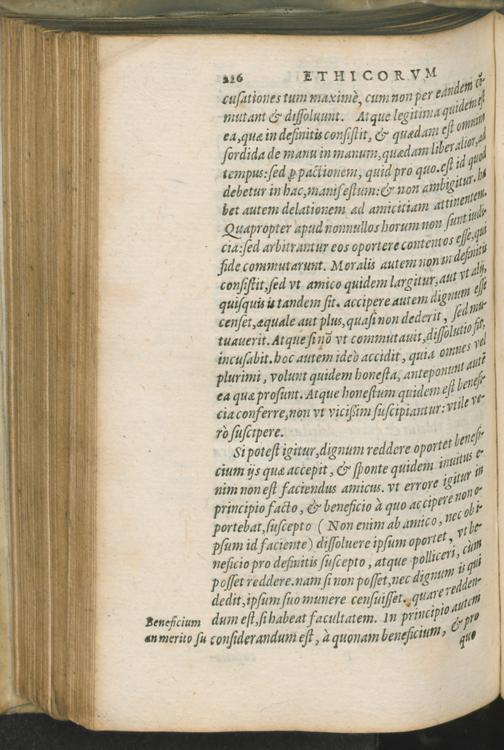 226 ETHICORVM
cusationes tum maximè, cum non per eandem cō-
mutant & dissoluunt. Atque legitima quidem est
ea, quæ in definitis consistit, & quædam est omnino
sordida de manu in manum, quædam liberalior, ad
tempus: sed p pactionem, quid pro quo. est id quod
debetur in hac, manifestum: & non ambigitur. ha
bet autem delationem ad amicitiam attinentem.
Quapropter apud nonnullos horum non sunt iudi-
cia: sed arbitrantur eos oportere contentos esse, qui
fide commutarunt. Moralis autem non in definitis
consistit, sed vt amico quidem largitur, aut vt alij,
quisquis is tandem sit. accipere autem dignum esse
censet, æquale aut plus, quasi non dederit, sed mu-
tuauerit. Atque si nō vt commutauit, dissolutio sit,
incusabit. hoc autem ideò accidit, quia omnes vel
plurimi, volunt quidem honesta, anteponunt autē
ea quæ prosunt. Atque honestum quidem est benefi-
cia conferre, non vt vicissim suscipiantur: vtile ve-
rò suscipere.
Si potest igitur, dignum reddere oportet benefi-
cium ijs quæ accepit, & sponte quidem inuitus e-
nim non est faciendus amicus. vt errore igitur in
principio facto, & beneficio à quo accipere non o-
portebat, suscepto (Non enim ab amico, nec ob i-
psum id faciente) dissoluere ipsum oportet, vt be-
neficio pro definitis suscepto, atque polliceri, cùm
posset reddere. nam si non posset, nec dignum is qui
dedit, ipsum suo munere censuisset. quare redden-
Beneficium dum est, si habeat facultatem. In principio autem
an merito su considerandum est, à quonam beneficium, & pro
quo